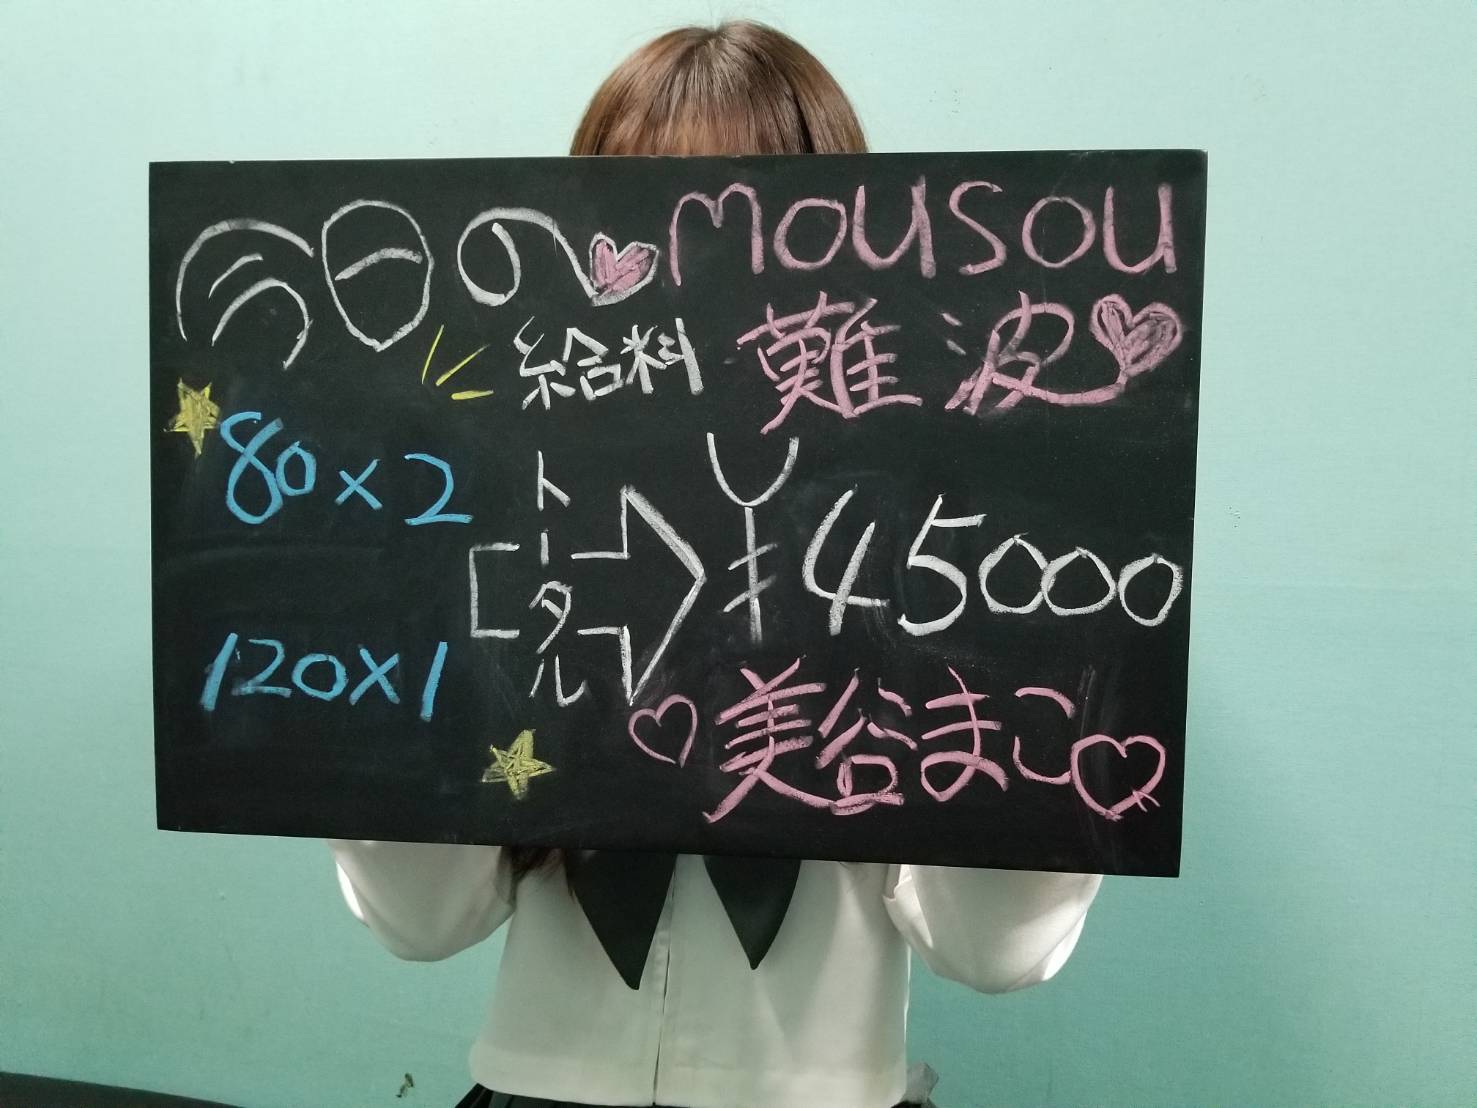 今日の mousou
給料 難波
80×2
トータル ¥45000
120×1
美谷まこ